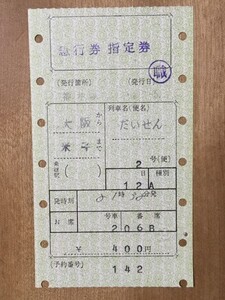 急行券 指定券
職
(発行箇所) (発行日)
列車名(便名)
大阪 から だいせん
米子 まで
2 号(便)
乗継駅 ( ) 日 種別
12A
発時刻 時 分発
お席 号車 番 席
206B
¥ 400円
(予約番号) 142